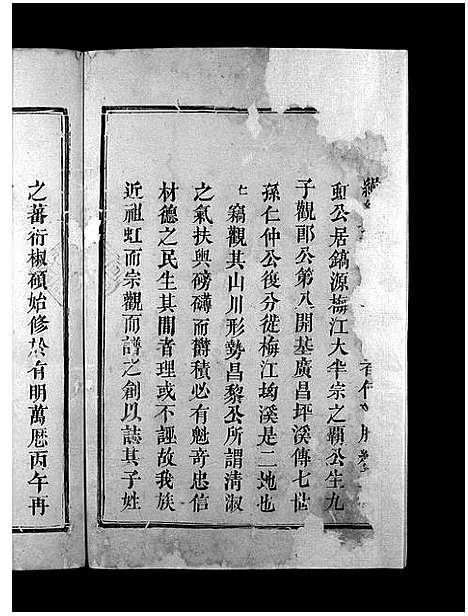 虹公居鎬源梅江大半宗之覇公生九
子觀郎公第八開基廣昌坪溪傳七世
孫仁仲公後分徙梅江坳溪是二地也
竊觀其山川形勢昌黎公所謂清淑
之氣扶輿磅礴而欝積必有魁竒忠信
材德之民生其間者理或不誣故我族
近祖虹而宗觀而譜之創以誌其子姓
之蕃衍椒碩始修於有明萬曆丙午再